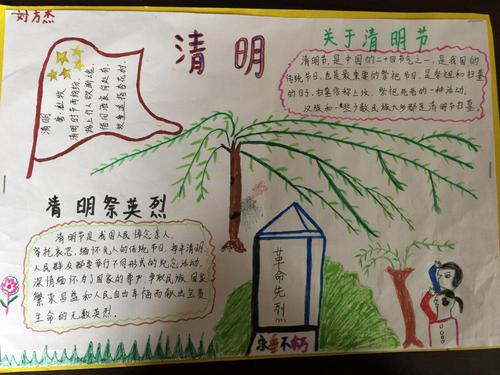 刘方杰
清明
关于清明节
清明节,是中国的二十四节气之一,是我国的
传统节日,也是最重要的祭祀节日,是祭祖和扫墓
的日子,扫墓俗称上坟,祭祀死者的一种活动。
汉族和一些少数民族大多都是清明节扫墓。
清明
唐 杜牧
清明时节雨纷纷,
路上行人欲断魂。
借问酒家何处有,
牧童遥指杏花村。
清明祭英烈
清明节是我国人民悼念亲人、
寄托哀思、缅怀先人的传统节日,每年清明,
人民群众都要举行不同形式的纪念活动,
深情缅怀为了国家的尊严,争取民族、国家
繁荣昌盛和人民自由幸福而献出宝贵
生命的无数英烈.
革命先烈
永垂不朽